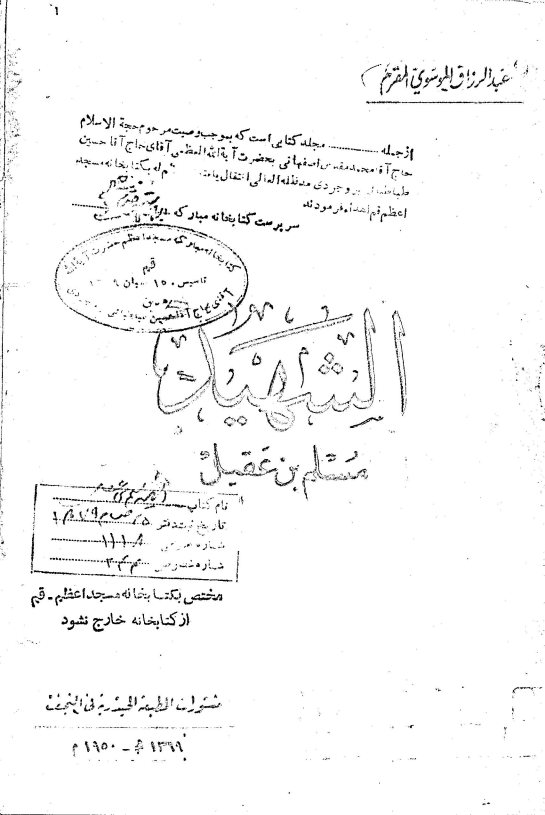 ١
عبد الرزاق الموسوي المقرم
از جمله ــــــ مجلد کتابی است که بموجب وصیت مرحوم حجة الاسلام
حاج آقا محمد مقدس اصفهانی بحضرت آیة الله العظمی آقای حاج آقا حسین
طباطبائی بروجردی مدظله العالی انتقال یافته
له بکتابخانه مسجد
اعظم قم اهداء فرمودند
سرپرست کتابخانه مبارکه
کتابخانه مبارکه مسجد اعظم حضرت آیة الله
قم
تاسیس ١٥
آقای حاج آقا حسین طباطبائی بروجردی
الشهيد
مسلم بن عقيل
نام کتاب
تاریخ ثبت دفتر
شماره عمومی ١١١٨
شماره خصوصی
مختص بکتابخانه مسجد اعظیم - قم
از کتابخانه خارج نشود
منشورات المطبعة الحيدرية في النجف
١٣٦٩ هـ - ١٩٥٠ م